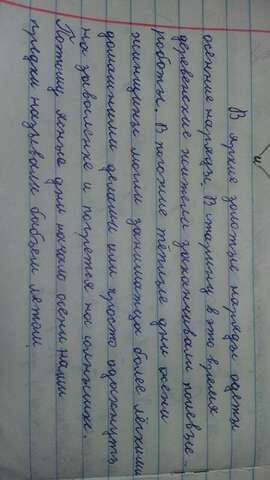 В яркие золотые наряды одеты
осенние наряды. В старину в это время
деревенские жители заканчивали полевые
работы. В погожие тёплые дни осени
женщины могли заниматца более лёгкими
домашними делами или просто отдохнуть
на заваленке и погретья на солнышке.
Потому ясные дни начало осени наши
предки называли бабьем летом.